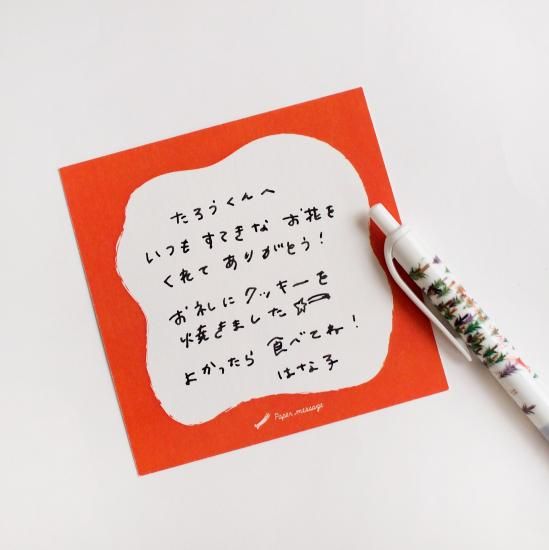 たろうくんへ
いつも すてきな お花を
くれて ありがとう!
お礼に クッキーを
焼きました
よかったら 食べてね!
はな子
Paper message